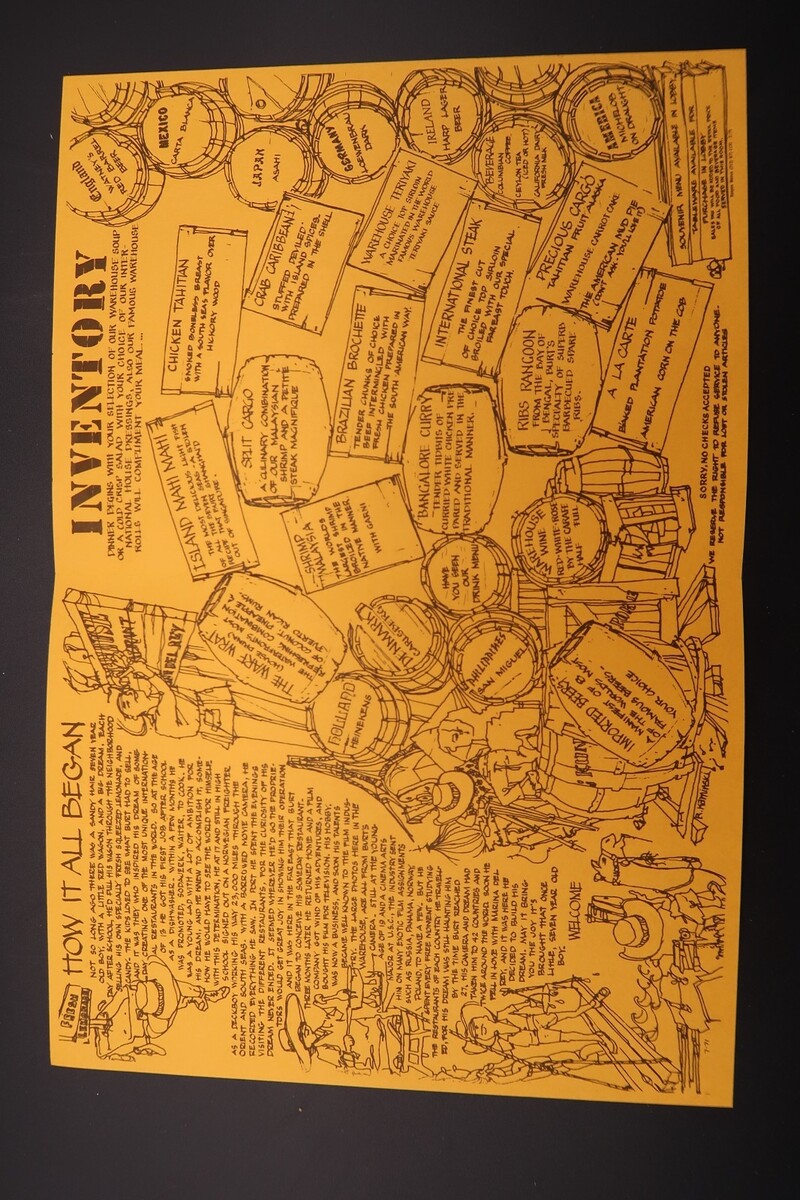 HOW IT ALL BEGAN
NOT SO LONG AGO THERE WAS A SANDY HAIR SEVEN YEAR
OLD BOY, WITH A LITTLE RED WAGON, AND A BIG DREAM. EACH
DAY AFTER SCHOOL HE'D PULL HIS WAGON THROUGH THE NEIGHBORHOOD
SELLING HIS OWN SPECIALLY FRESH SQUEEZED LEMONADE, AND
CANDY. THE KIDS LOVED TO SEE WHAT BURT HAD TO SELL,
AND IT WAS THEY WHO INSPIRED HIS DREAM OF SOME-
DAY CREATING ONE OF THE MOST UNIQUE INTERNATION-
AL RESTAURANTS IN THE WORLD. SO AT THE AGE
OF 15 HE GOT HIS FIRST JOB AFTER SCHOOL
AS A DISHWASHER. WITHIN A FEW MONTHS HE
WAS PROMOTED, SODAJERK, WAITER, TO COOK, HE
WAS A YOUNG LAD WITH A LOT OF AMBITION FOR
HIS DREAM, AND HE KNEW TO ACCOMPLISH IT, SOME
HOW HE WOULD HAVE TO SEE THE WORLD FOR HIMSELF.
WITH THIS DETERMINATION, HE AT 17 AND STILL IN HIGH
SCHOOL SIGNED ONTO A NORWEGIAN FREIGHTER
AS A DECKBOY WORKING HIS WAY 23,000 MILES THROUGH THE
ORIENT AND SOUTH SEAS. WITH A BORROWED MOVIE CAMERA, HE
RECORDED EVERYTHING. IN PORT HE SPENT THE EVENINGS
VISITING THE DIFFERENT RESTAURANTS, FOR THE CURIOSITY OF HIS
DREAM NEVER ENDED. IT SEEMED WHEREVER HE'D GO THE PROPRIE-
TORS WOULD GET GREAT JOY SHOWING HIM THEIR OPERATION
AND IT WAS HERE IN THE FAR EAST THAT BURT
BEGAN TO CONCEIVE HIS SOMEDAY RESTAURANT.
THREE MONTHS LATER HE RETURNED HOME AND A FILM
COMPANY GOT WIND OF HIS ADVENTURES, AND
BOUGHT HIS FILM FOR TELEVISION. HIS HOBBY,
WAS NOW A BUSINESS, AND SOON HIS TALENTS
BECAME WELL KNOWN TO THE FILM INDUS-
TRY. THE LARGE PHOTOS HERE IN THE
WAREHOUSE, ARE ALL FROM BURT'S
CAMERA. STILL AT THE YOUNG
AGE OF 19 AND A CINEMA ARTS
MAJOR AT U.S.C. THE INDUSTRY SENT
HIM ON MANY EXOTIC FILM ASSIGNMENTS
SUCH AS RUSSIA, PANAMA, NORWAY,
POLAND TO NAME A FEW. BUT HE
SPENT EVERY FREE MOMENT STUDYING
THE RESTAURANTS OF EACH COUNTRY HE TRAVEL-
ED, FOR HIS DREAM WAS STILL HAUNTING HIM.
BY THE TIME BURT REACHED
27, HIS CAMERA AND DREAM HAD
TAKEN HIM TO 42 COUNTRIES AND
TWICE AROUND THE WORLD. SOON HE
FELL IN LOVE WITH MARINA DEL
REY, AND IT WAS HERE HE
DECIDED TO BUILD HIS
DREAM. MAY IT BRING
YOU THE JOY IT
BROUGHT THAT ONCE
LITTLE, SEVEN YEAR OLD
BOY.
WELCOME
INVENTORY
DINNER BEGINS WITH YOUR SELECTION OF OUR WAREHOUSE SOUP
OR A COLD CRISP SALAD WITH YOUR CHOICE OF OUR INTER-
NATIONAL HOUSE DRESSINGS. ALSO OUR FAMOUS WAREHOUSE
ROLLS WILL COMPLIMENT YOUR MEAL....
ISLAND MAHI MAHI
CHICKEN TAHITIAN
SMOKED BONELESS BREAST
WITH A SOUTH SEAS FLAVOR OVER
HICKORY WOOD
SPLIT CARGO
A CULINARY COMBINATION
OF OUR MALAYSIAN
SHRIMP AND A PETITE
STEAK MAGNIFIQUE
CRAB CARIBBEAN
STUFFED DEVILED
WITH ISLAND SPICES.
PREPARED IN THE SHELL
SHRIMP MALAYSIA
THE WORLD'S
LARGEST SHRIMP
BROILED IN THE
NATIVE MANNER
WITH GARNI
BRAZILIAN BROCHETTE
TENDER CHUNKS OF CHOICE
BEEF INTERMINGLED WITH
FRESH CHICKEN PREPARED IN
THE SOUTH AMERICAN WAY.
WAREHOUSE TERIYAKI
A CHOICE TOP SIRLOIN
MARINATED IN THE WORLD
FAMOUS WAREHOUSE
TERIYAKI SAUCE
BANGALORE CURRY
TENDER TIDBITS OF
CURRIED WHITE CHICKEN PRE-
PARED AND SERVED IN THE
TRADITIONAL MANNER.
INTERNATIONAL STEAK
THE FINEST CUT
OF CHOICE TOP SIRLOIN
BROILED WITH OUR SPECIAL
FAR EAST TOUCH
RIBS RANGOON
FROM THE BAY OF
BENGAL, BURT'S
SPECIALTY OF SUPERB
BARBECUED SPARE
RIBS.
PRECIOUS CARGO
TAHITIAN FRUIT ALASKA
WAREHOUSE CARROT CAKE
THE AMERICAN MUD PIE
(DON'T ASK - YOU'LL LOVE IT)
A LA CARTE
BAKED PLANTATION POTATOE
AMERICAN CORN ON THE COB
England
WATNEY'S
RED BARREL
BEER
MEXICO
CARTA BLANCA
JAPAN
ASAHI
GERMANY
LOEWENBRAU
DARK
IRELAND
HARP LAGER
BEER
BEVERAGE
COLUMBIAN
COFFEE
CEYLON TEA
(ICED OR HOT)
CALIFORNIA DAIRY
FRESH MILK
AMERICA
MICHELOB
ON DRAUGHT
SOUVENIR MENU AVAILABLE IN LOBBY
TABLEWARE AVAILABLE FOR
PURCHASE IN LOBBY
THE WAKI WRAT
PUERTO RICAN
RUM
HAVE
YOU SEEN
OUR
DRINK MENU
WAREHOUSE
WINE
RED-WHITE-ROSE
BY THE CARAFE
HALF FULL
DENMARK
CARLSBERG
PHILLIPINES
SAN MIGUEL
HOLLAND
HEINEKENS
IMPORTED BEER
A
MANIFEST OF
THE WORLD'S MOST
FAMOUS BEERS....
YOUR CHOICE
SORRY, NO CHECKS ACCEPTED
WE RESERVE THE RIGHT TO REFUSE SERVICE TO ANYONE.
NOT RESPONSIBLE FOR LOST OR STOLEN ARTICLES